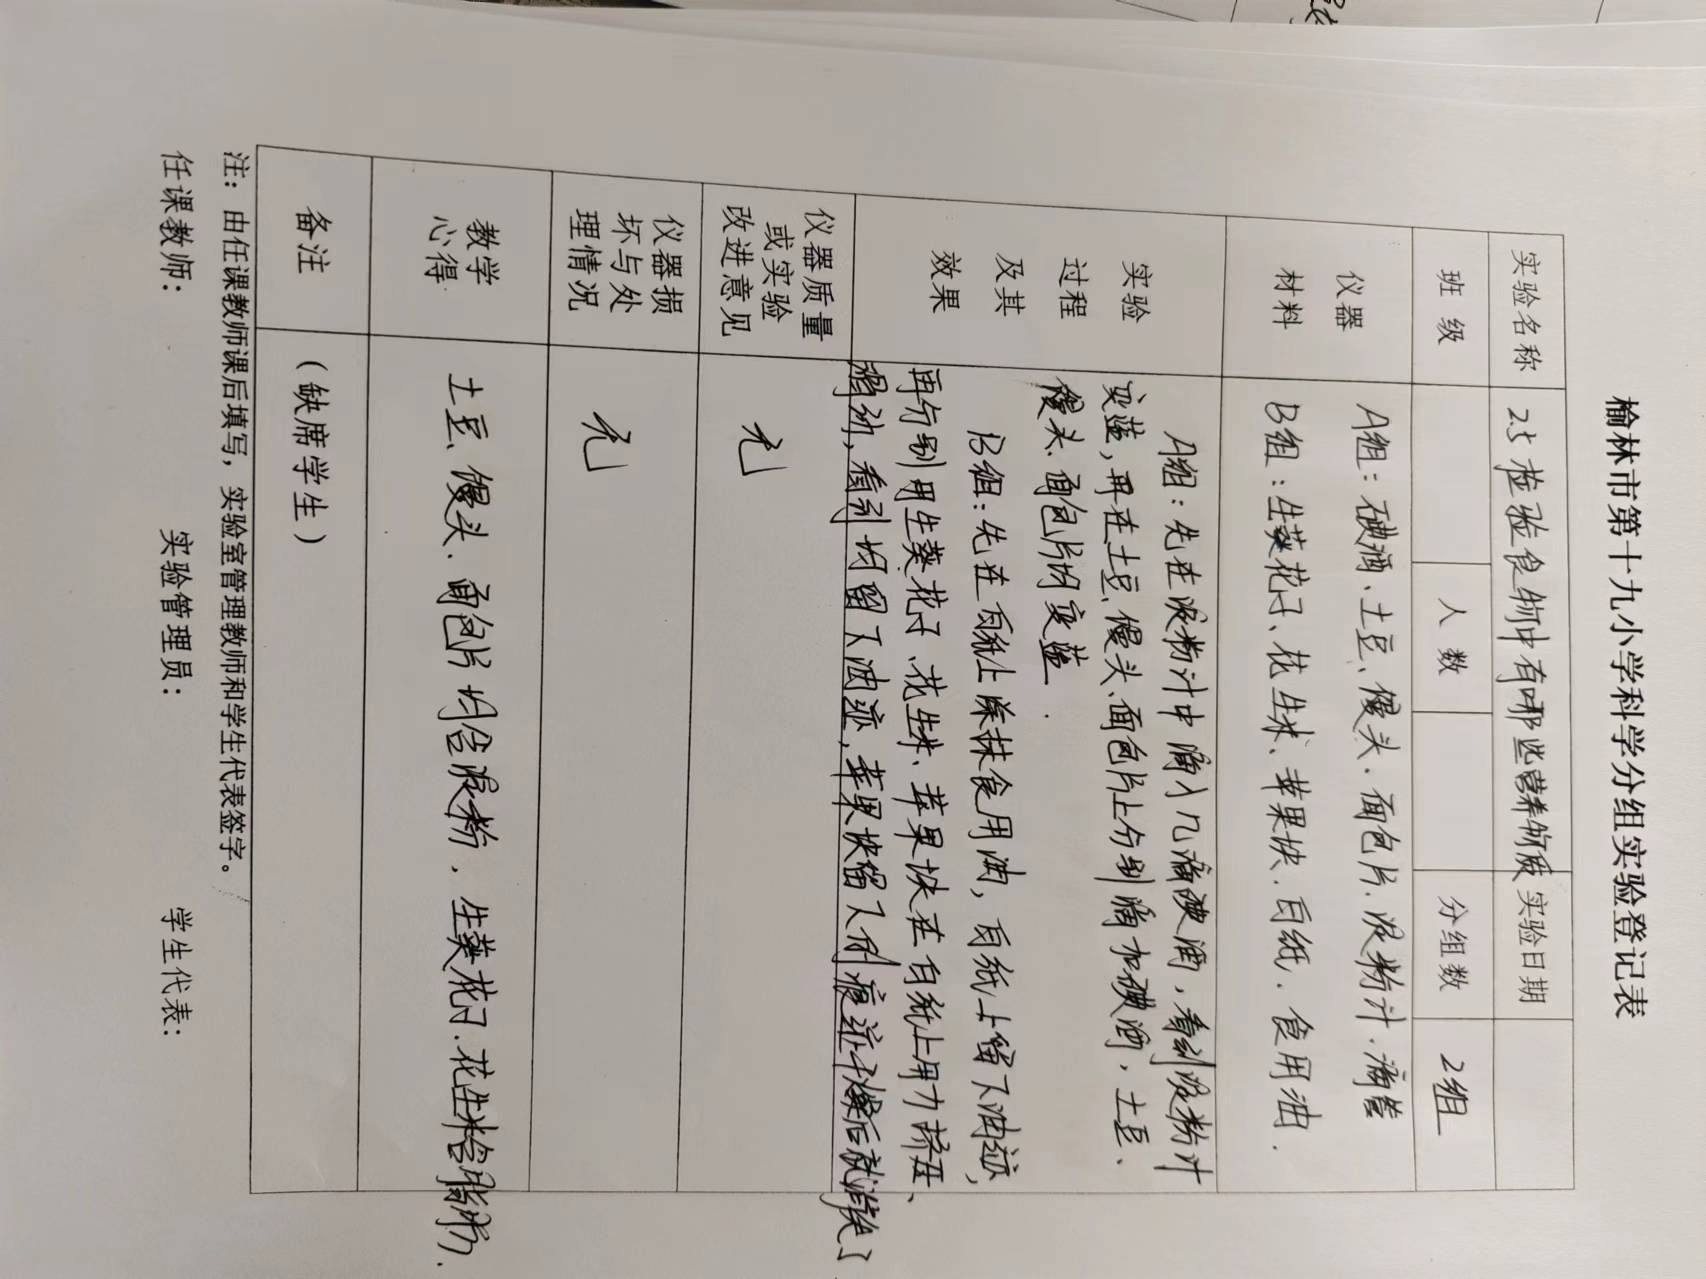 榆林市第十九小学科学分组实验登记表
实验名称 2.5检验食物中有哪些营养物质 实验日期
班级 人数 分组数 2组
仪器
材料
A组：碘酒、土豆、馒头、面包片、淀粉汁、滴管
B组：生葵花子、花生米、苹果块、白纸、食用油．
实验
过程
及其
效果
A组：先在淀粉汁中滴入几滴碘酒，看到淀粉汁
变蓝，再在土豆、馒头、面包片上分别滴加碘酒，土豆、
馒头、面包片均变蓝．
B组：先在白纸上涂抹食用油，白纸上留下油迹，
再分别用生葵花子、花生米、苹果块在白纸上用力挤压、
滑动，看到均留下油迹，苹果块留下的痕迹干燥后就消失了
仪器质量
或实验
改进意见
无
仪器损
坏与处
理情况
无
教学
心得
土豆、馒头、面包片均含淀粉，生葵花子、花生米含脂肪．
备注 （缺席学生）
注：由任课教师课后填写，实验室管理教师和学生代表签字。
任课教师： 实验管理员： 学生代表：